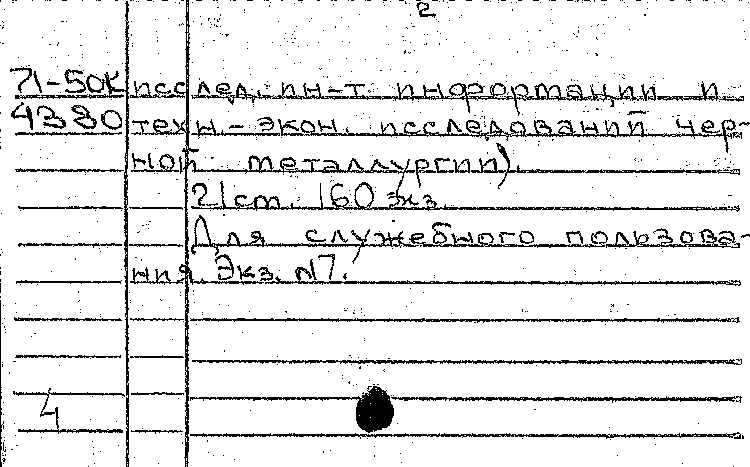 2
71-50К исслед. ин-т информации и
4330 техн.-экон. исследований чер-
ной металлургии).
21 ст. 160 экз.
Для служебного пользова-
ния. Экз. N7.
4